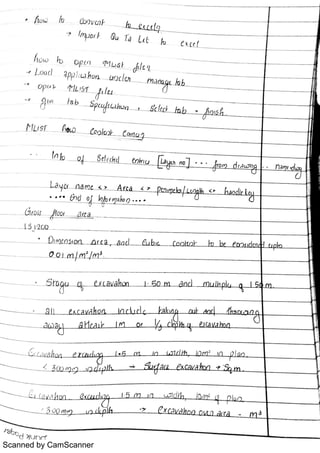 • how to convert to excel
→ Import Qu Ta Let to excel
how to open MLIST files
→ Load application under manage tab
→ open MLIST files
→ tab Specification → Select tab → finish
MLIST
Info of Selected entries [Layer no] ... from drawing ... 
Layer name <> Area <> perimeter/Length <> handle key
.... End of Information ....
Gross floor area.
IS 1200
• Dimension area, and Cubic content to be considered upto
0.01 m/m²/m³.
• Stage of excavation 1.50 m and multiple of 1.50 m.
• all excavation include taking out and throwing
away atleast 1m or 1/3 depth of excavation
Excavation exceeding 1.5 m in width, 10m² in plan.
< 300mm in depth → Surface excavation → Sq.m.
Excavation exceeding 1.5 m in width, 10m² of plan
300mm in depth → Excavation over area - m³
Scanned by CamScanner